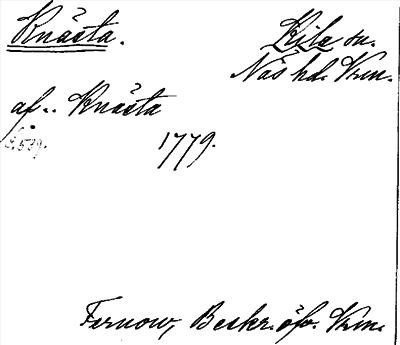 Knåsta.
Kila sn.
Näs hd. Vrm.
af.. Knåsta
s. 539.
1779.
Fernow, Beskr. öfv. Vrm.